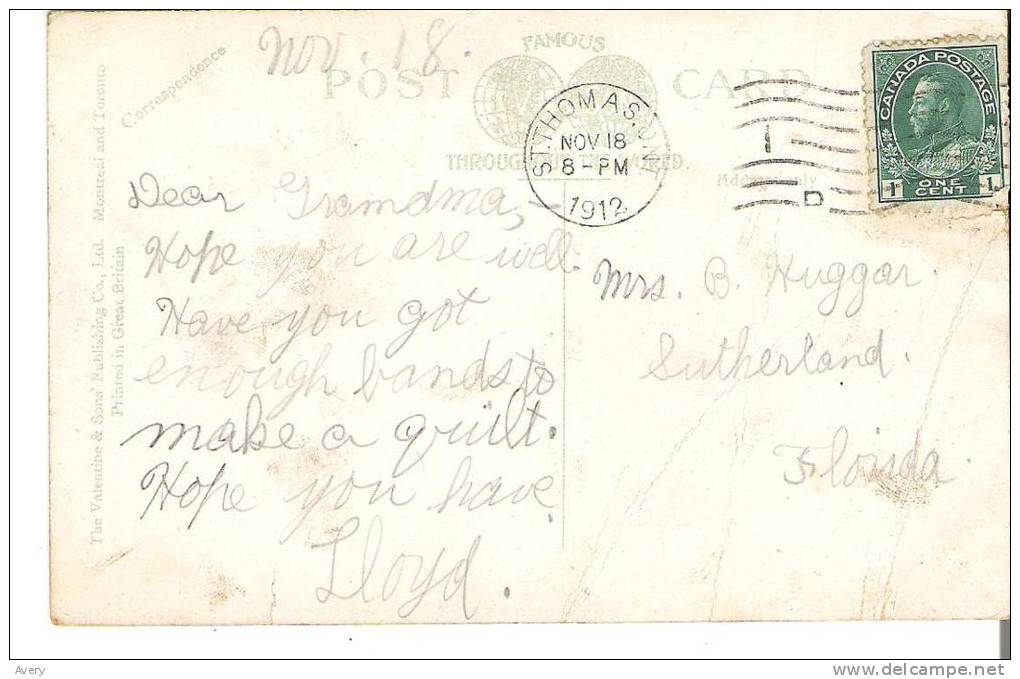 Nov. 18.
Correspondence
FAMOUS
POST CARD
THROUGHOUT THE WORLD.
Address only
ST. THOMAS, ONT.
NOV 18
8 - PM
1912
1
D
CANADA POSTAGE
1 ONE CENT 1
The Valentine & Sons' Publishing Co., Ltd. Montreal and Toronto
Printed in Great Britain
Dear Grandma,-
Hope you are well.
Have you got
enough bands to
make a quilt.
Hope you have
Lloyd.
Mrs. B. Huggar.
Sutherland.
Florida.
Avery
www.delcampe.net